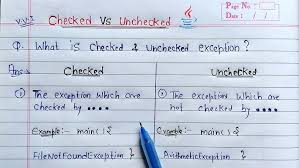 v.v.I Checked Vs Unchecked Java
Page No :
Date : / /
Q. What is checked & Unchecked exception?
Ans:
Checked Unchecked
① The exception which are checked by •••• ① The exception which are not checked by ••••
Example:- main() { Example:- main() {
FileNotFoundException } ArithmeticException }